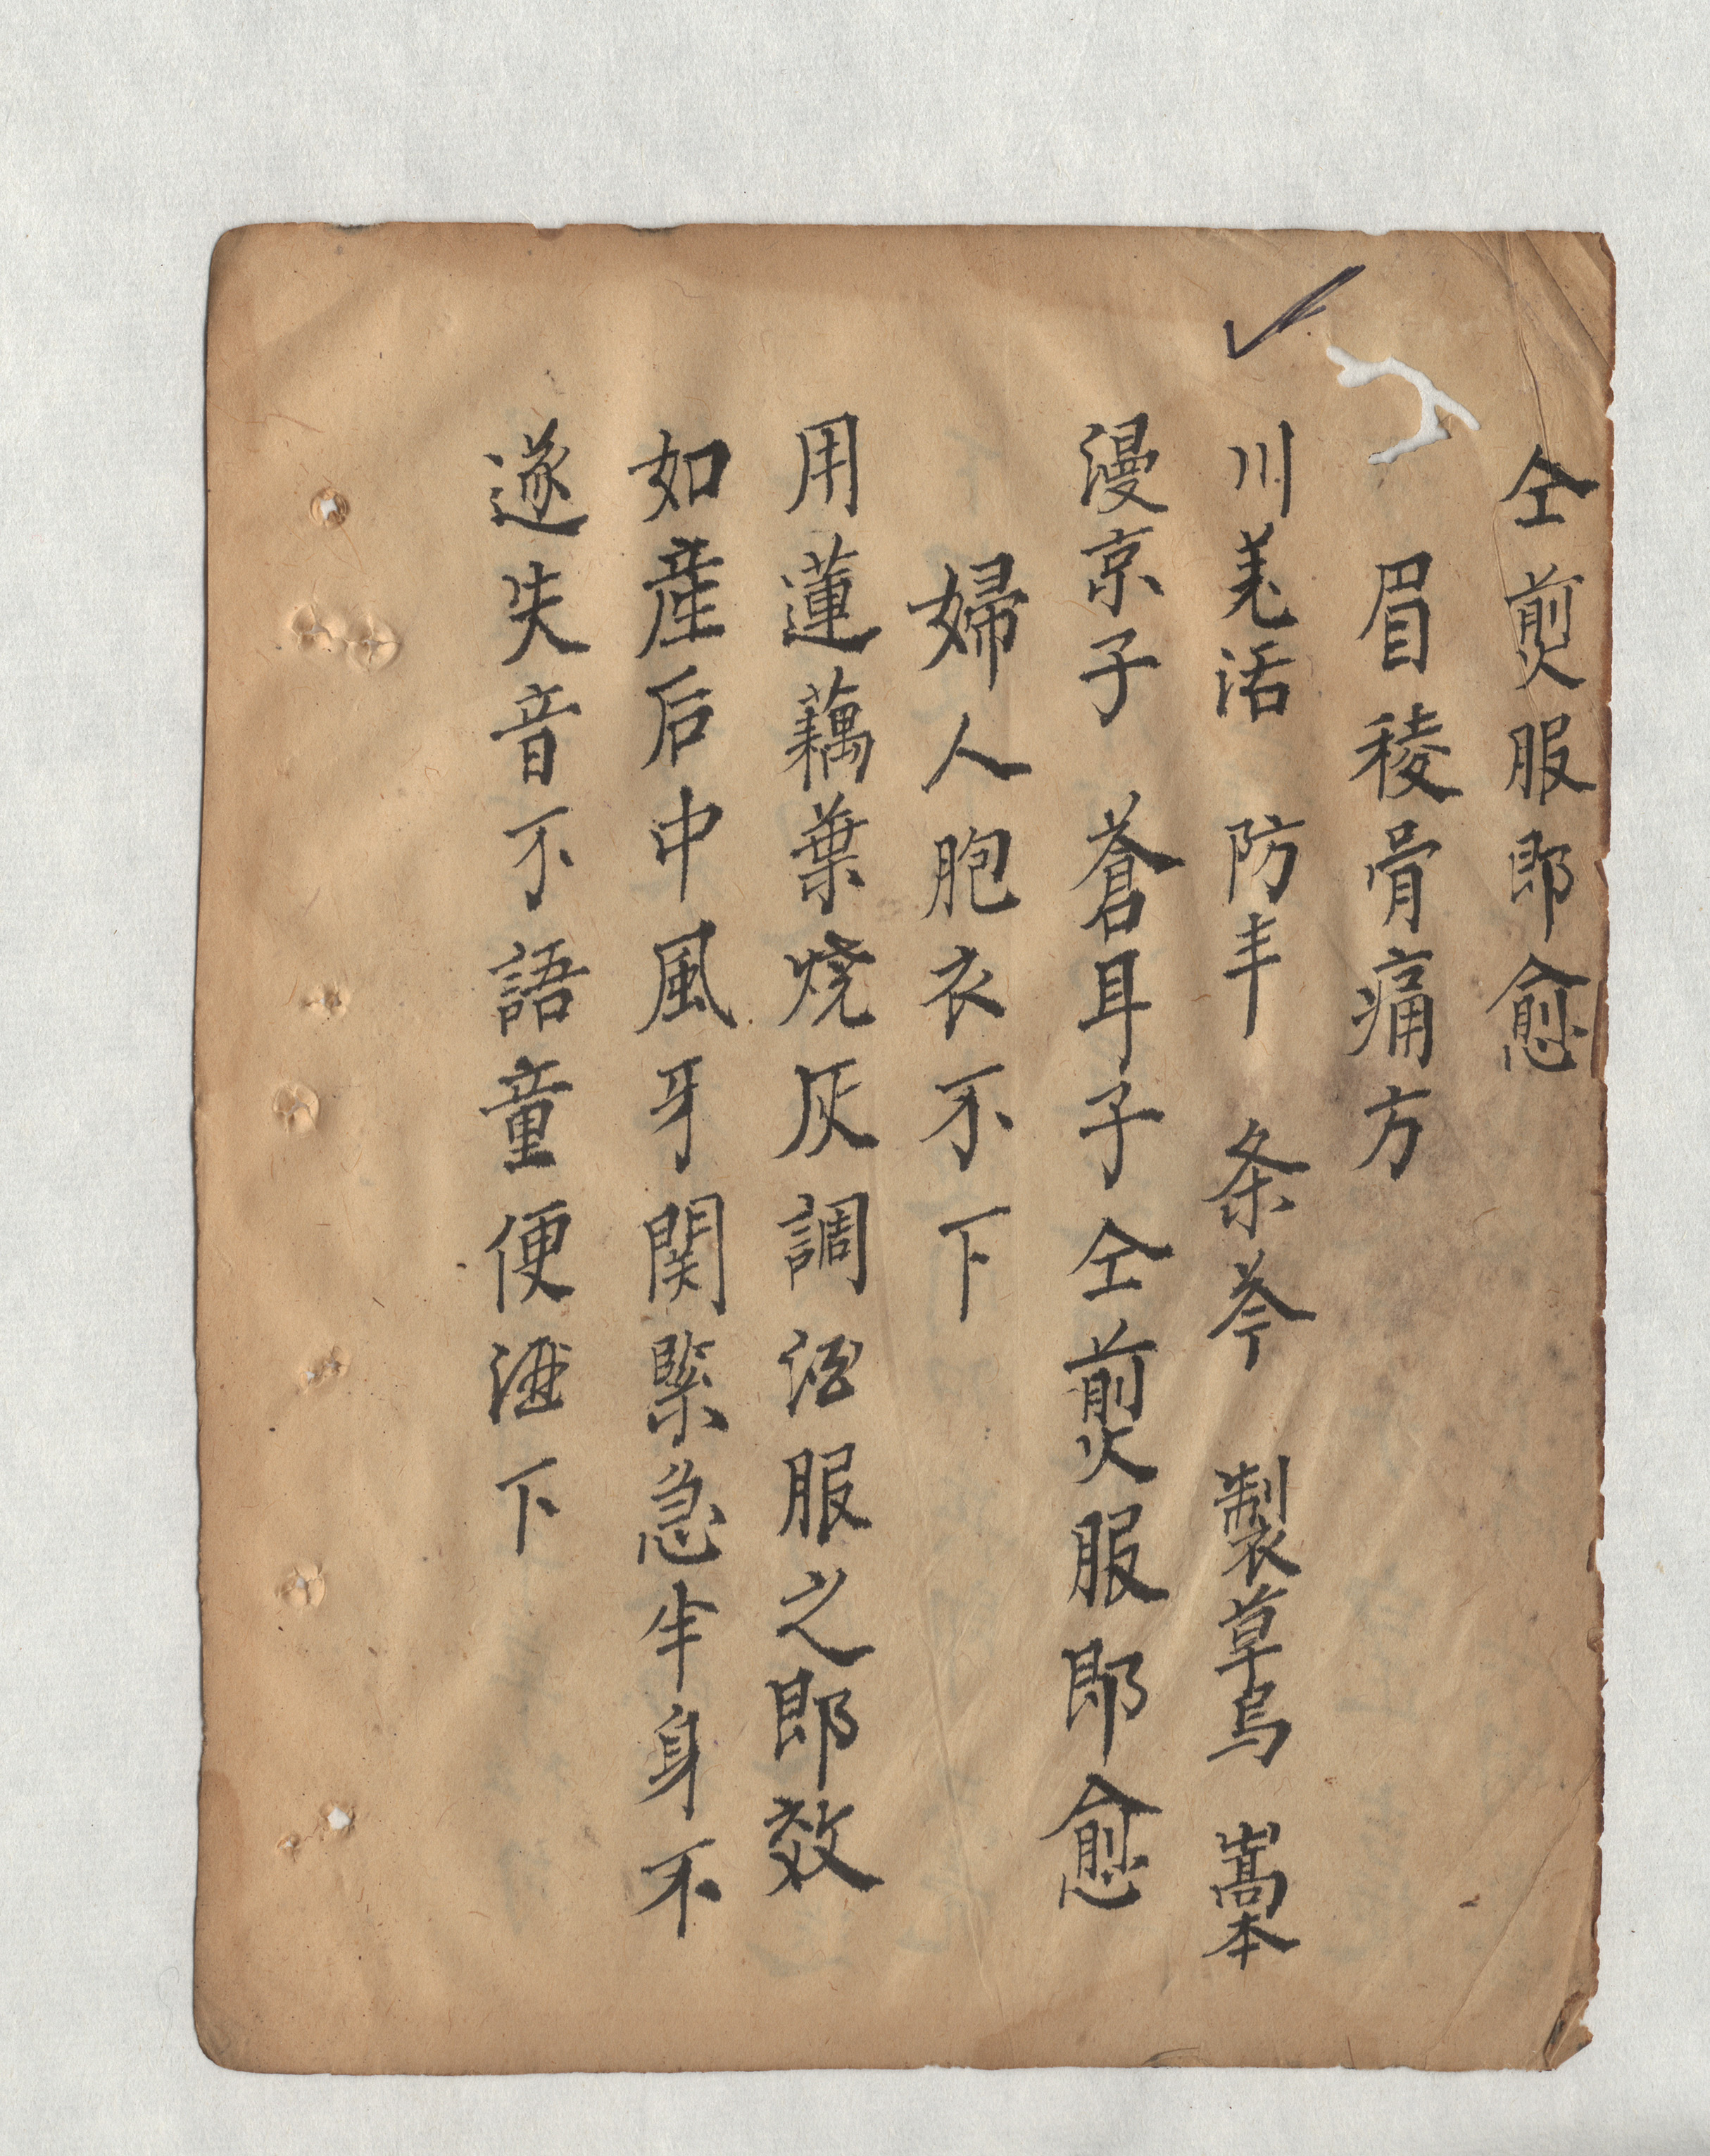 仝煎服即愈
眉稜骨痛方
川羌活 防丰 条芩 製草烏 蒿本
漫京子 蒼耳子仝煎服即愈
婦人胞衣不下
用蓮藕葉烧灰調酒服之即效
如産后中風牙関緊急半身不
遂失音不語童便酒下